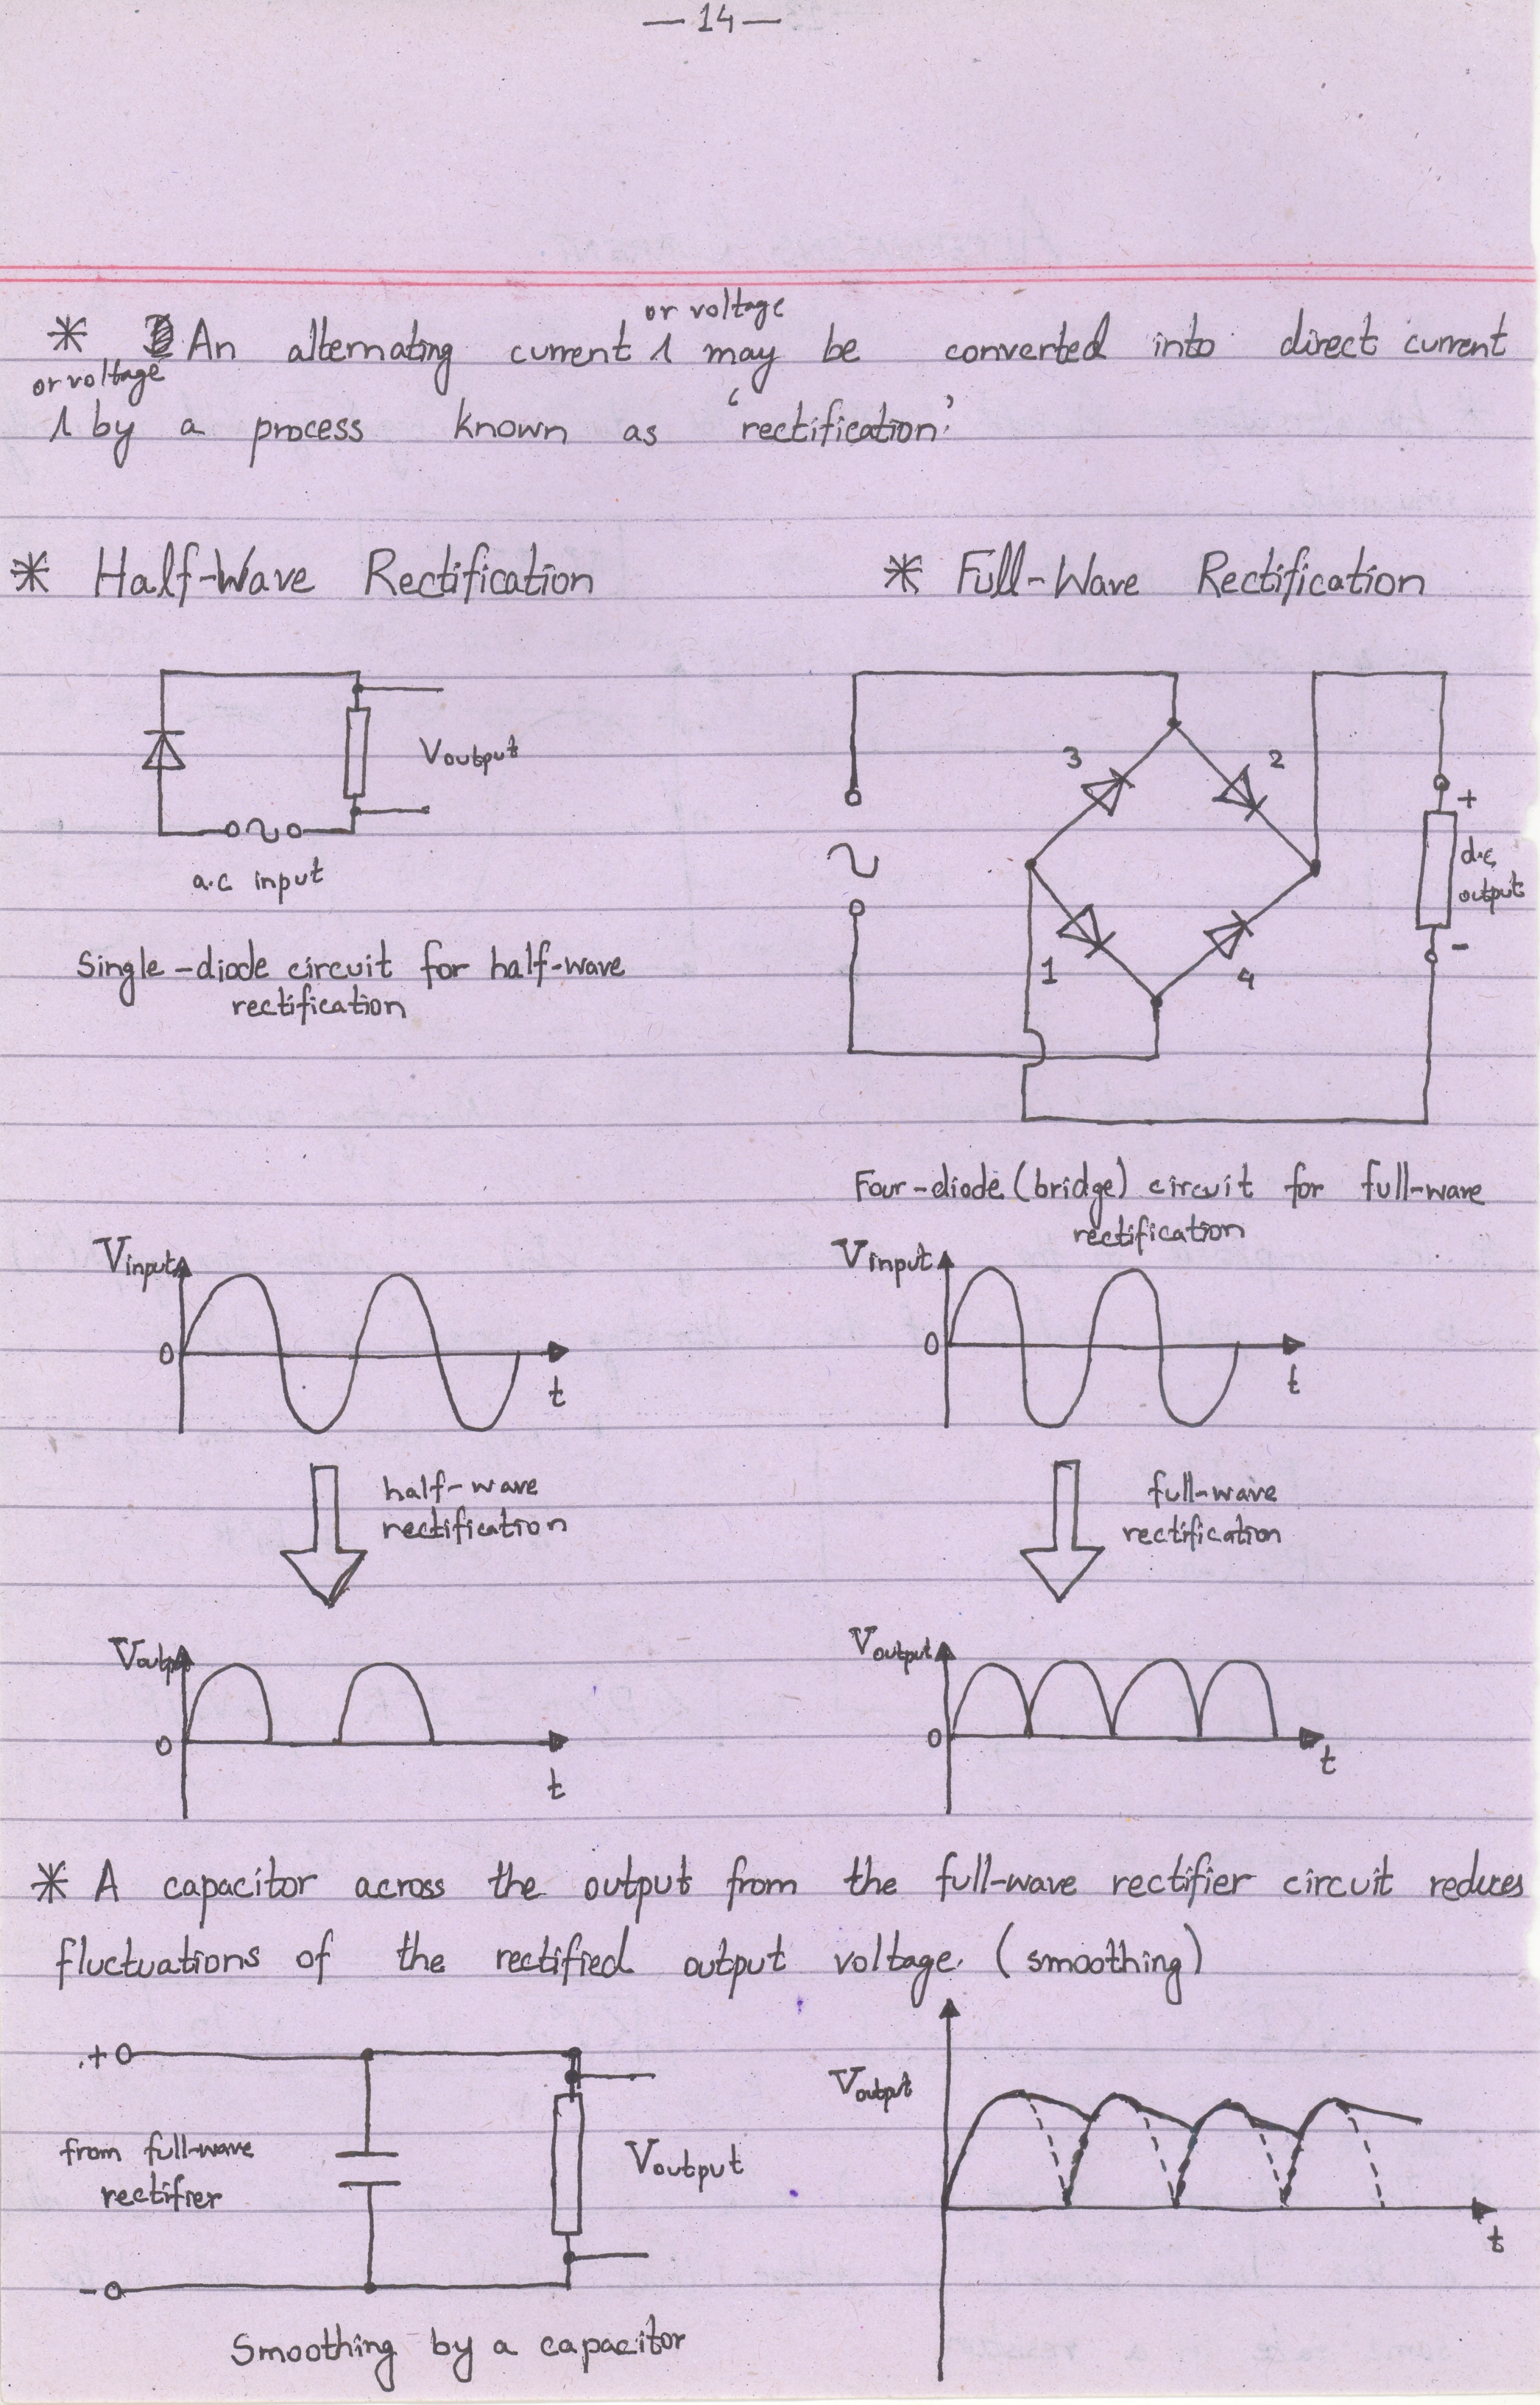 — 14 —
or voltage
* An alternating current ʌ may be converted into direct current
or voltage
ʌ by a process known as 'rectification.'
* Half-Wave Rectification
* Full-Wave Rectification
Voutput
a.c input
Single-diode circuit for half-wave
rectification
3 2
+
d.c
output
1 4
-
Four-diode (bridge) circuit for full-wave
rectification
Vinput
0
t
Vinput
0
t
half-wave
rectification
full-wave
rectification
Voutp
0
t
Voutput
0
t
* A capacitor across the output from the full-wave rectifier circuit reduces
fluctuations of the rectified output voltage. (smoothing)
+
from full-wave
rectifier
-
Voutput
Smoothing by a capacitor
Voutput
t